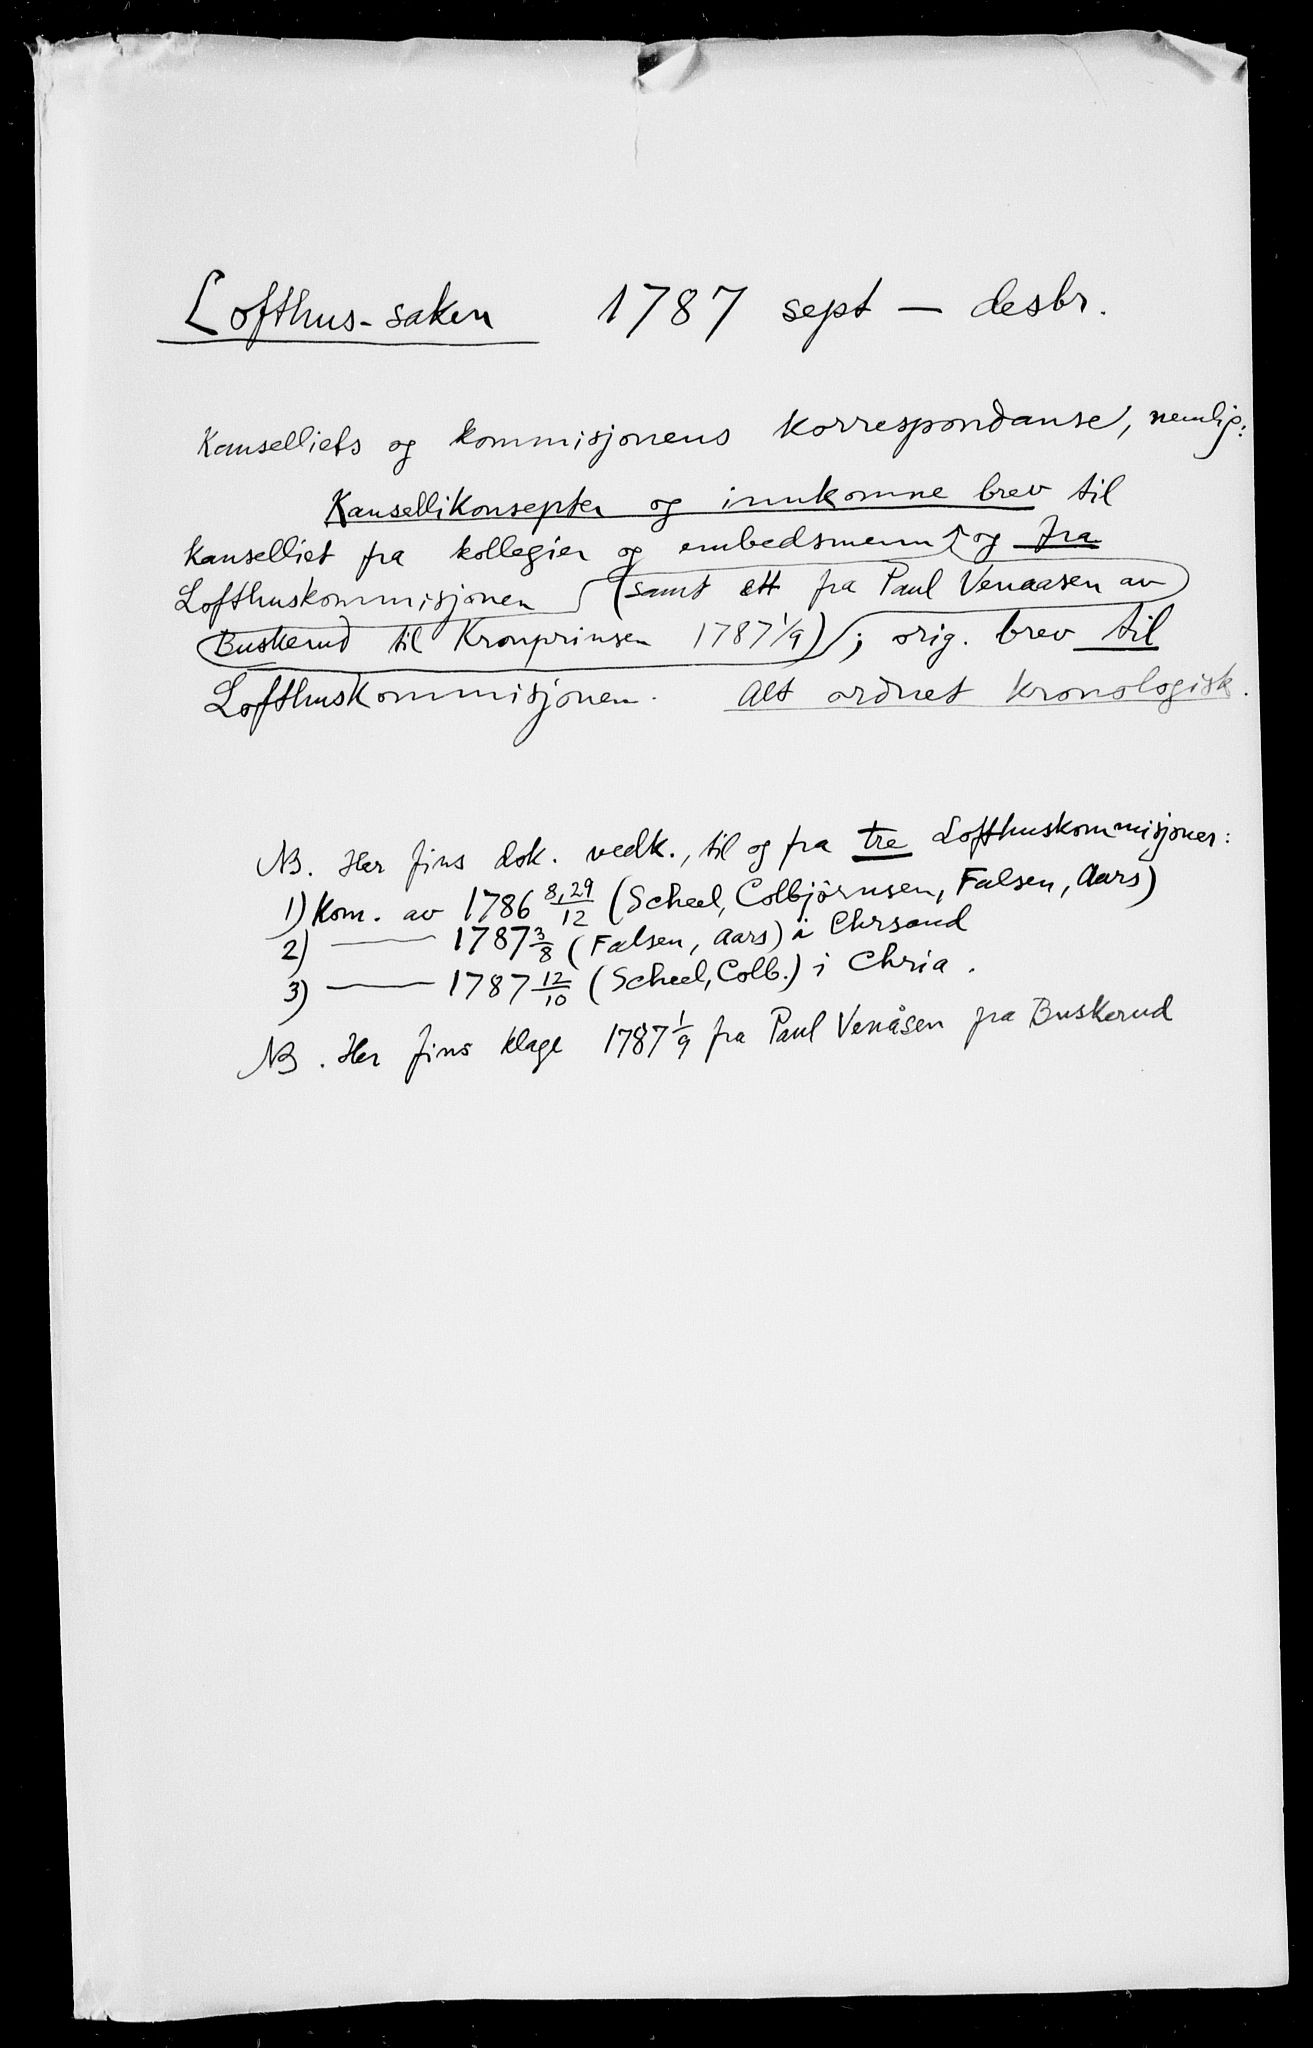 Lofthus-saken 1787 sept — desbr.
Kanselliets og kommisjonens korrespondanse, nemlig:
Kansellikonsepter og innkomne brev til
kanselliet fra kollegier og embedsmenn og fra
Lofthuskommisjonen (samt ett fra Paul Venaasen av
Buskerud til Kronprinsen 1787 1/9); orig. brev til
Lofthuskommisjonen. Alt ordnet kronologisk.
NB. Her fins dok. vedk., til og fra tre Lofthuskommisjoner:
1) Kom. av 1786 8,29/12 (Scheel, Colbjörnsen, Falsen, Aars)
2) —— 1787 3/8 (Falsen, Aars) i Chrsand
3) —— 1787 12/10 (Scheel, Colb.) i Chria.
NB. Her fins klage 1787 1/9 fra Paul Venåsen fra Buskerud